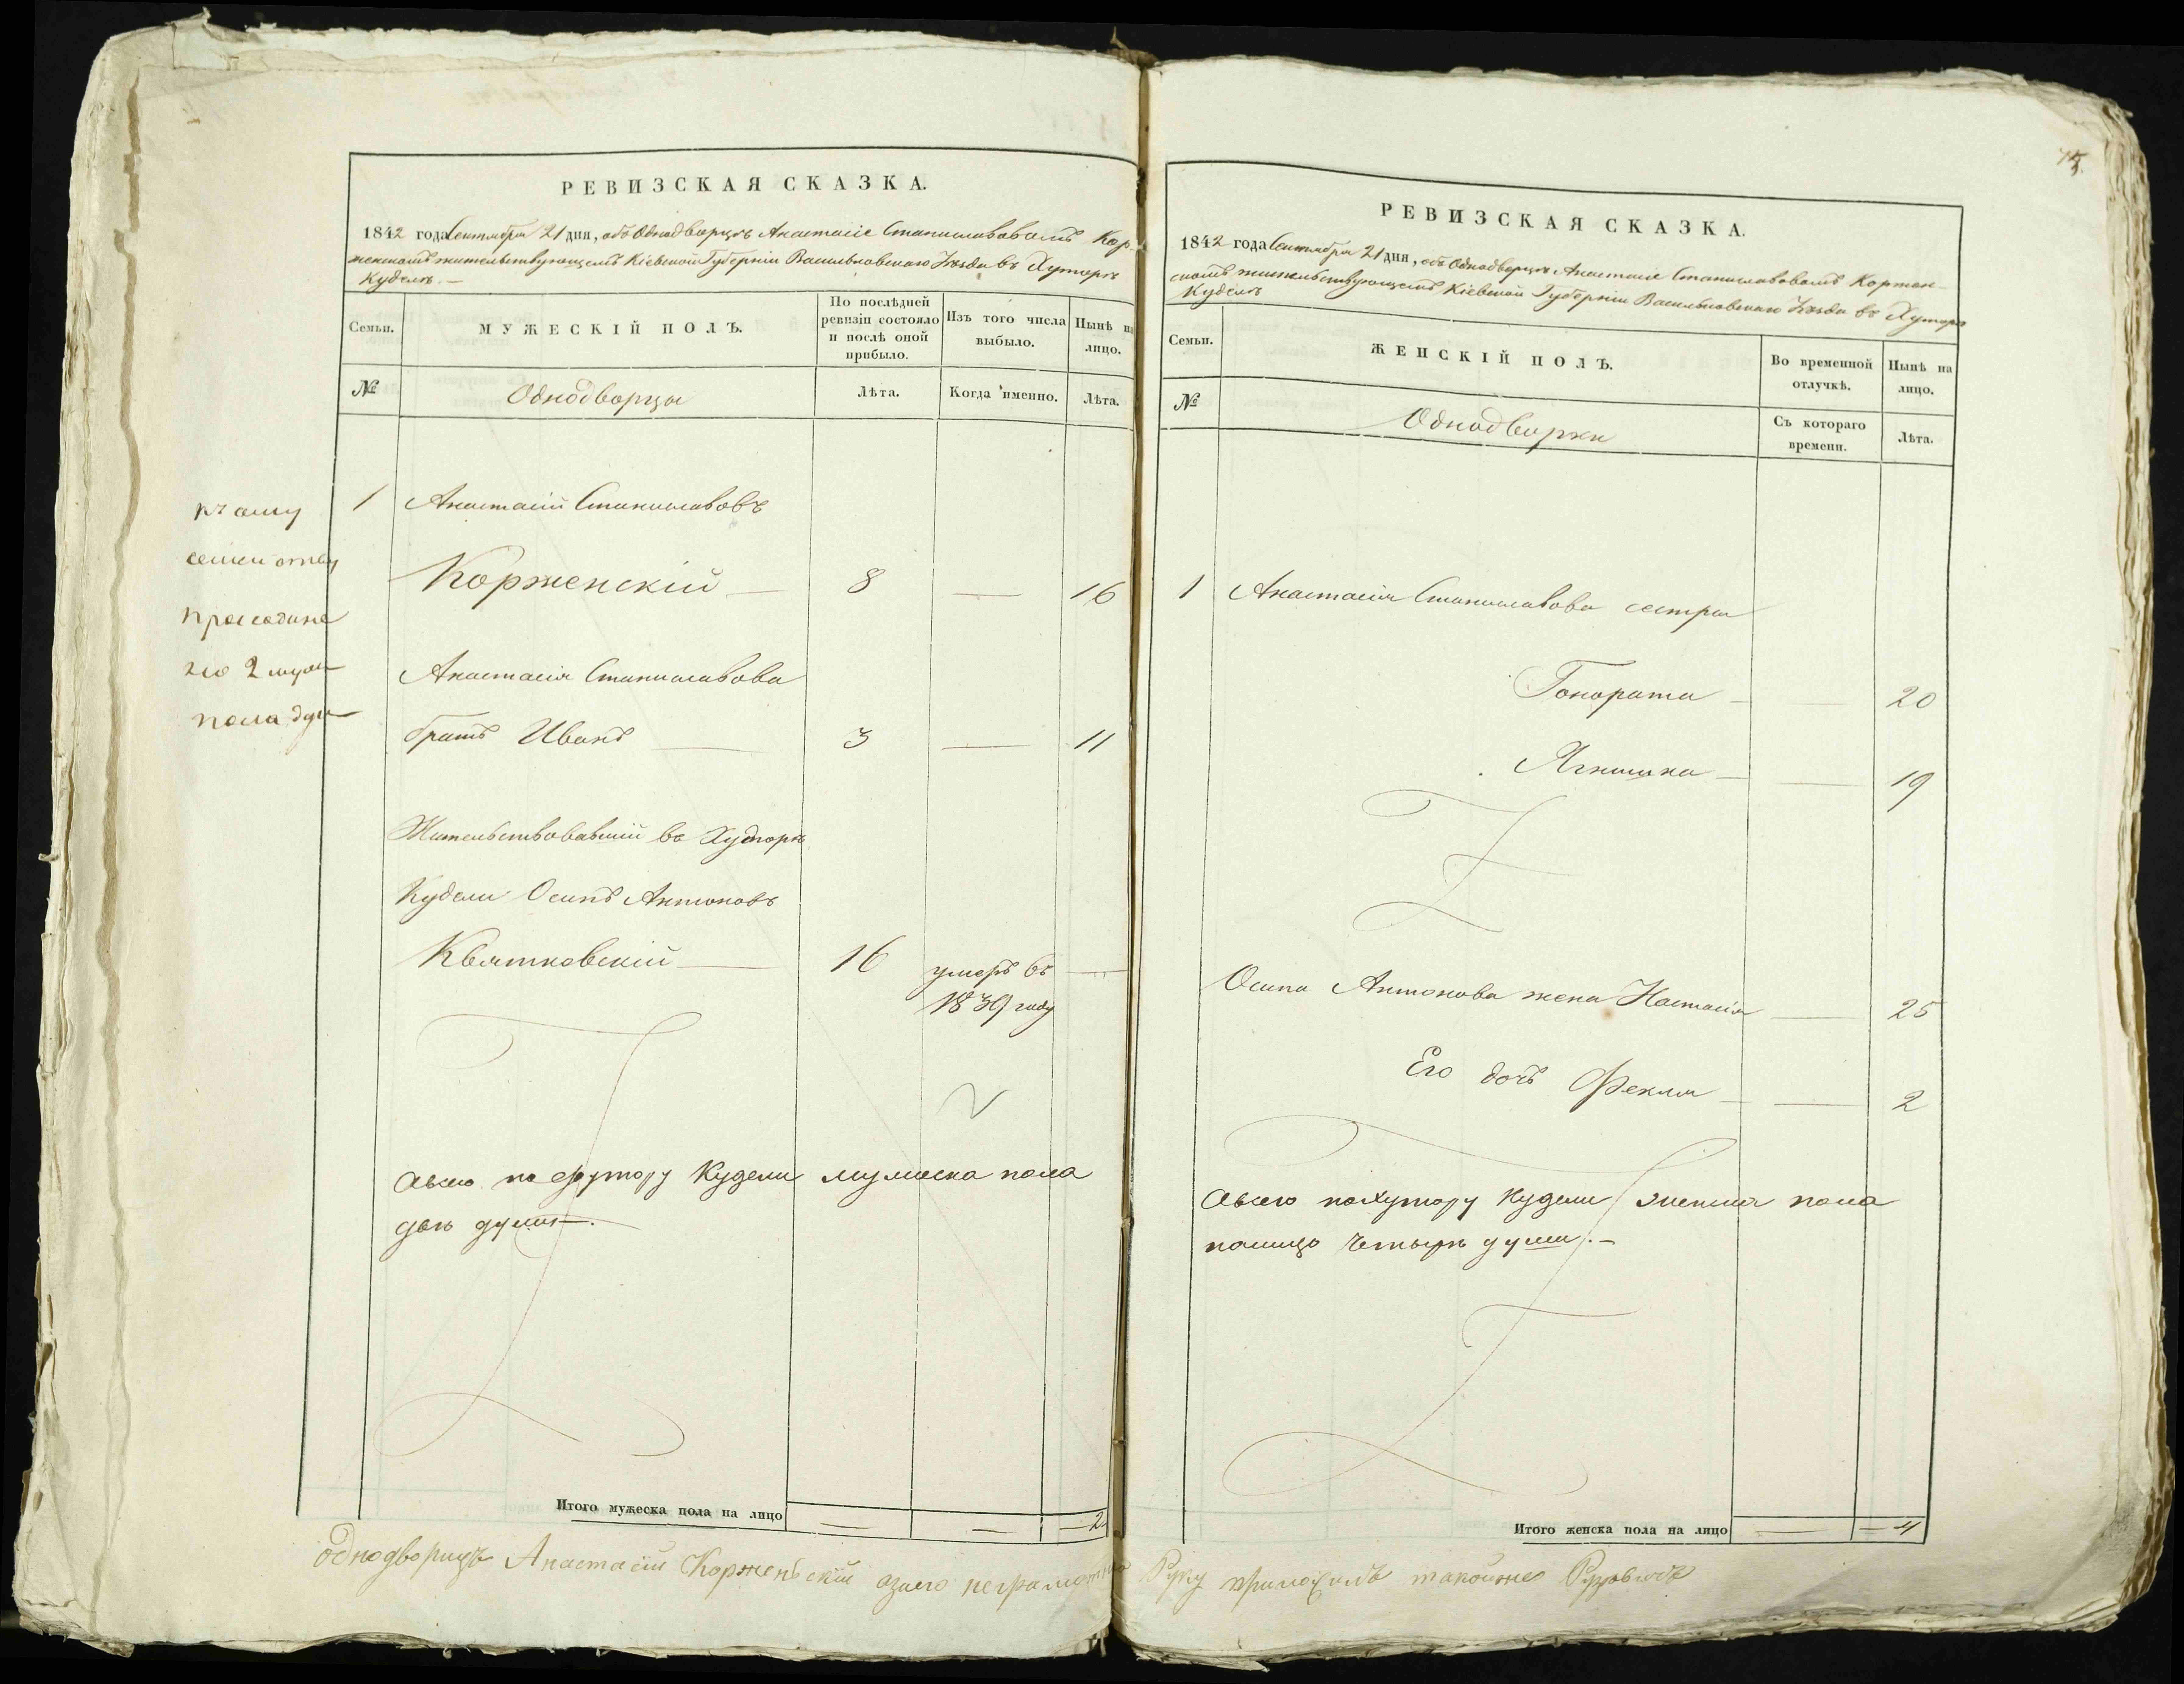 РЕВИЗСКАЯ СКАЗКА.
1842 года Сентября 21 дня, объ Однодворцѣ Анастасіе Станиславовомъ Кор-
женскомъ жительствующемъ Кіевской Губерніи Васильковскаго Уѣзда въ Хуторѣ
Куделѣ. —
Семьи.
МУЖЕСКІЙ ПОЛЪ.
По послѣдней ревизіи состояло и послѣ оной прибыло.
Изъ того числа выбыло.
Нынѣ на лицо.
№
Однодворцы
Лѣта.
Когда именно.
Лѣта.
1 Анастасій Станиславовъ
Корженскій — 8 — 16
Анастасія Станиславова
братъ Иванъ — 3 — 11
Жительствовавшій въ Хуторѣ
Кудели Осипъ Антоновъ
Квятковскій — 16 умеръ въ —
1839 году
семейству
2
пола душ
Авсего по хутору Кудели мужеска пола
двѣ души.
Итого мужеска пола на лицо — — 2
однодворицъ Анастасій Корженьскій азаего неграмотнаго
75.
РЕВИЗСКАЯ СКАЗКА.
1842 года Сентября 21 дня, объ Однодворцѣ Анастасіе Станиславовомъ Коржен-
скомъ жительствующемъ Кіевской Губерніи Васильковскаго Уѣзда въ Хуторѣ
Куделѣ
Семьи.
ЖЕНСКІЙ ПОЛЪ.
Во временной отлучкѣ.
Нынѣ на лицо.
№
Однодворки
Съ котораго времени.
Лѣта.
1 Анастасія Станиславова сестра
Гонората — — 20
Ягнишка — — 19
Осипа Антонова жена Настасія — 25
Его дочь Фекла — — 2
Авсего похутору Кудели женска пола
налицо Четырѣ души. —
Итого женска пола на лицо — — 4
Руку приложилъ такойже